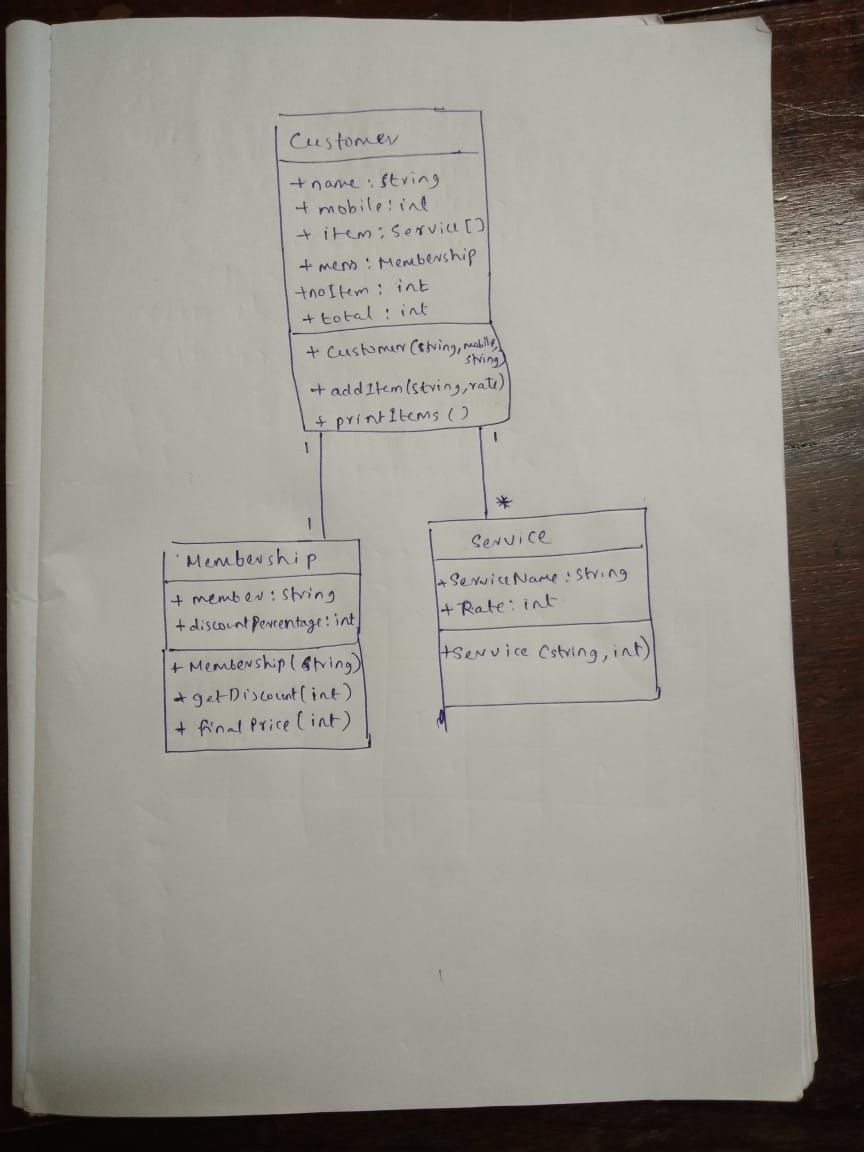 Customer
+ name : String
+ mobile : int
+ item : Service []
+ mem : Membership
+ noItem : int
+ total : int
+ Customer (String, mobile, String)
+ addItem (String, rate)
+ printItems ()
1
1
1
*
Membership
+ member : String
+ discountPercentage : int
+ Membership (String)
+ getDiscount (int)
+ finalPrice (int)
Service
+ ServiceName : String
+ Rate : int
+ Service (string, int)